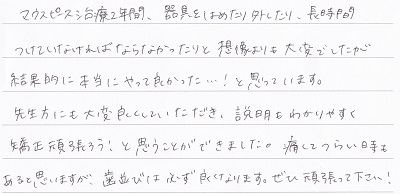 マウスピス治療2年間、器具をはめたり外したり、長時間
つけていなければならなかったりと想像よりも大変でしたが
結果的に本当にやって良かった…！と思っています。
先生方にも大変良くしていただき、説明もわかりやすく
矯正頑張ろう！と思うことができました。痛くてつらい日も
あると思いますが、歯並びは必ず良くなります。ぜひ頑張って下さい！